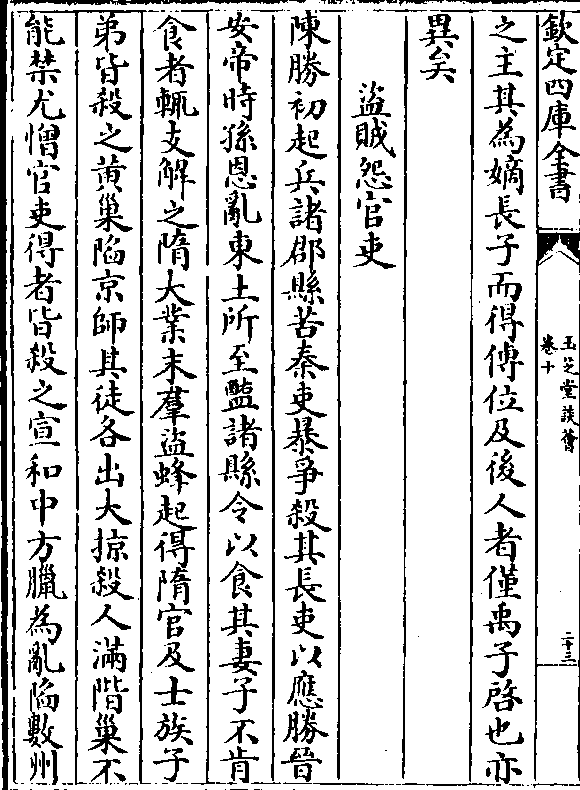 欽定四庫全書
玉芝堂談薈
卷十
二十三
之主其為嫡長子而得傳位及後人者僅禹子啓也亦
異矣
盜賊怨官吏
陳勝初起兵諸郡縣苦秦吏暴爭殺其長吏以應勝晉
安帝時孫恩亂東土所至醢諸縣令以食其妻子不肯
食者輒支解之隋大業末羣盜蜂起得隋官及士族子
弟皆殺之黄巢陷京師其徒各出大掠殺人滿階巢不
能禁尤憎官吏得者皆殺之宣和中方臘為亂陷數州